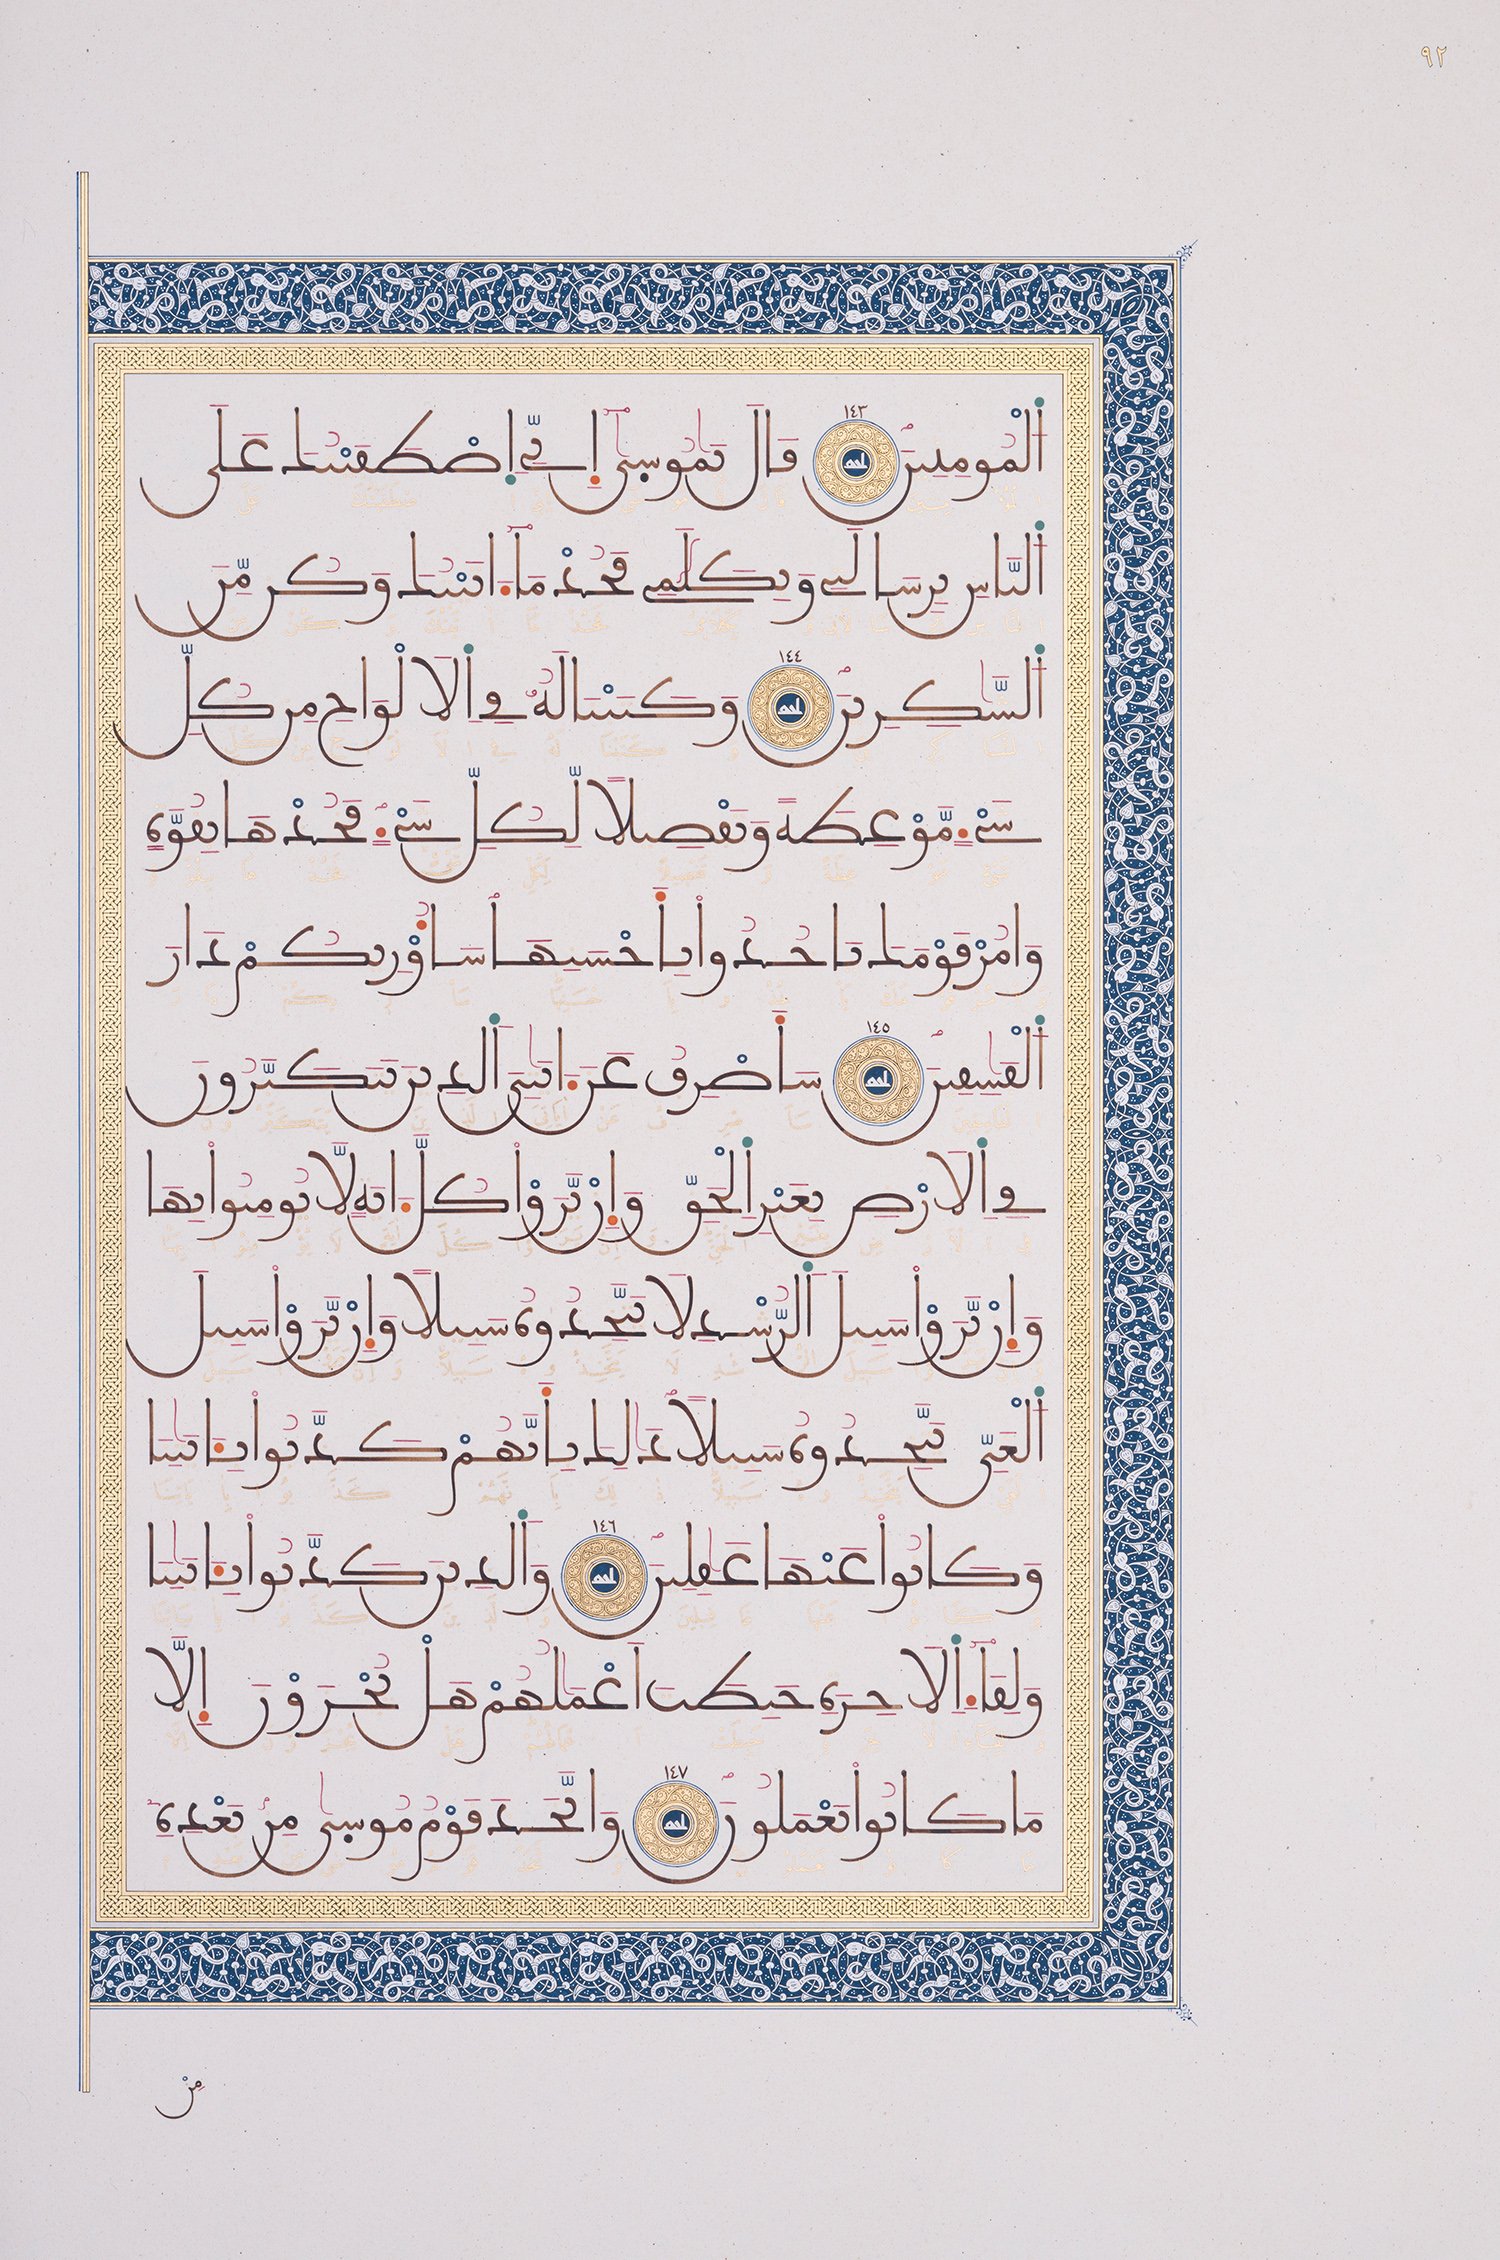 ٩٢
اَ۬لْمُومِنِينَۖ ١٤٣ قَالَ يَٰمُوس۪يٰٓ إِنِّيَ اِ۪صْطَفَيْتُكَ عَلَى
اَ۬لنَّاسِ بِرِسَالَتِے وَبِكَلَٰمِے فَخُذْ مَآ ءَاتَيْتُكَ وَكُن مِّنَ
اَ۬لشَّٰكِرِينَۖ ١٤٤ وَكَتَبْنَا لَهُۥ فِے اِ۬لَالْوَاحِ مِن كُلِّ
شَےْءٖ مَّوْعِظَةٗ وَتَفْصِيلاٗ لِّكُلِّ شَےْءٖۖ فَخُذْهَا بِقُوَّةٖ
وَامُرْ قَوْمَكَ يَاخُذُواْ بِأَحْسَنِهَاۖ سَأُوْرِيكُمْ دَارَ
اَ۬لْفَٰسِقِينَۖ ١٤٥ سَأَصْرِفُ عَنَ اٰيَٰتِيَ اَ۬لذِينَ يَتَكَبَّرُونَ
فِے اِ۬لَارْضِ بِغَيْرِ اِ۬لْحَقِّ وَإِنْ يَّرَوْاْ كُلَّ ءَايَةٖ لَّا يُومِنُواْ بِهَا
وَإِنْ يَّرَوْاْ سَبِيلَ اَ۬لرُّشْدِ لَا يَتَّخِذُوهُ سَبِيلاٗ وَإِنْ يَّرَوْاْ سَبِيلَ
اَ۬لْغَيِّ يَتَّخِذُوهُ سَبِيلاٗۖ ذَٰلِكَ بِأَنَّهُمْ كَذَّبُواْ بِـَٔايَٰتِنَا
وَكَانُواْ عَنْهَا غَٰفِلِينَۖ ١٤٦ وَالذِينَ كَذَّبُواْ بِـَٔايَٰتِنَا
وَلِقَآءِ اِ۬لَاخِرَةِ حَبِطَتَ اَعْمَٰلُهُمْ هَلْ يُجْزَوْنَ إِلَّا
مَا كَانُواْ يَعْمَلُونَۖ ١٤٧ وَاتَّخَذَ قَوْمُ مُوس۪يٰ مِنۢ بَعْدِهِۦ
مِنْ